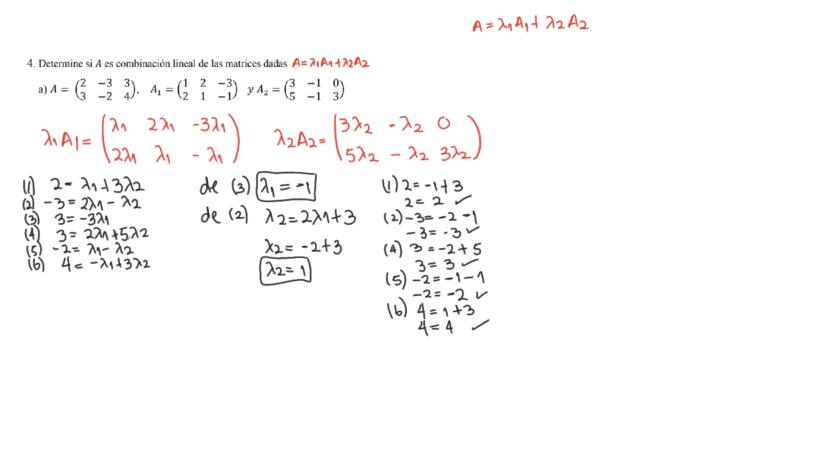 A = λ1A1 + λ2A2
4. Determine si A es combinación lineal de las matrices dadas A = λ1A1 + λ2A2
a) A = (2 −3 3
3 −2 4), A₁ = (1 2 −3
2 1 −1) y A₂ = (3 −1 0
5 −1 3)
λ1A1 = (λ1 2λ1 -3λ1
2λ1 λ1 -λ1)
λ2A2 = (3λ2 -λ2 0
5λ2 -λ2 3λ2)
(1) 2 = λ1 + 3λ2
(2) -3 = 2λ1 - λ2
(3) 3 = -3λ1
(4) 3 = 2λ1 + 5λ2
(5) -2 = λ1 - λ2
(6) 4 = -λ1 + 3λ2
de (3) λ1 = -1
de (2) λ2 = 2λ1 + 3
λ2 = -2 + 3
λ2 = 1
(1) 2 = -1 + 3
2 = 2 ✓
(2) -3 = -2 - 1
-3 = -3 ✓
(4) 3 = -2 + 5
3 = 3 ✓
(5) -2 = -1 - 1
-2 = -2 ✓
(6) 4 = 1 + 3
4 = 4 ✓